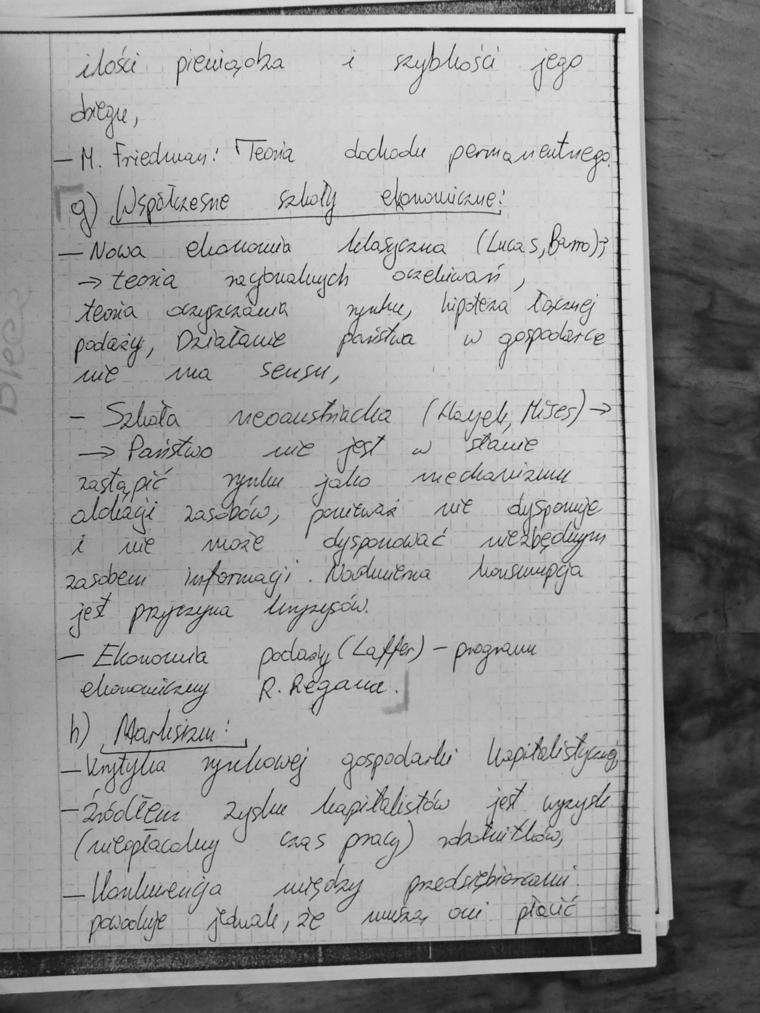 ilości pieniądza i szybkości jego
obiegu,
– M. Friedman: Teoria dochodu permanentnego.
g) Współczesne szkoły ekonomiczne:
– Nowa ekonomia klasyczna (Lucas, Barro);
→ teoria racjonalnych oczekiwań,
teoria oczyszczania rynku, hipoteza łącznej
podaży, Działanie państwa w gospodarce
nie ma sensu,
– Szkoła neoaustriacka (Hayek, Mises) →
→ Państwo nie jest w stanie
zastąpić rynku jako mechanizmu
alokacji zasobów, ponieważ nie dysponuje
i nie może dysponować niezbędnym
zasobem informacji. Nadmierna konsumpcja
jest przyczyną kryzysów.
– Ekonomia podaży (Laffer) – program
ekonomiczny R. Regana.
h) Marksizm:
– Krytyka rynkowej gospodarki kapitalistycznej,
– Źródłem zysku kapitalistów jest wyzysk
(nieopłacalny czas pracy) robotników,
– Konkurencja między przedsiębiorcami
powoduje jednak, że muszą oni płacić